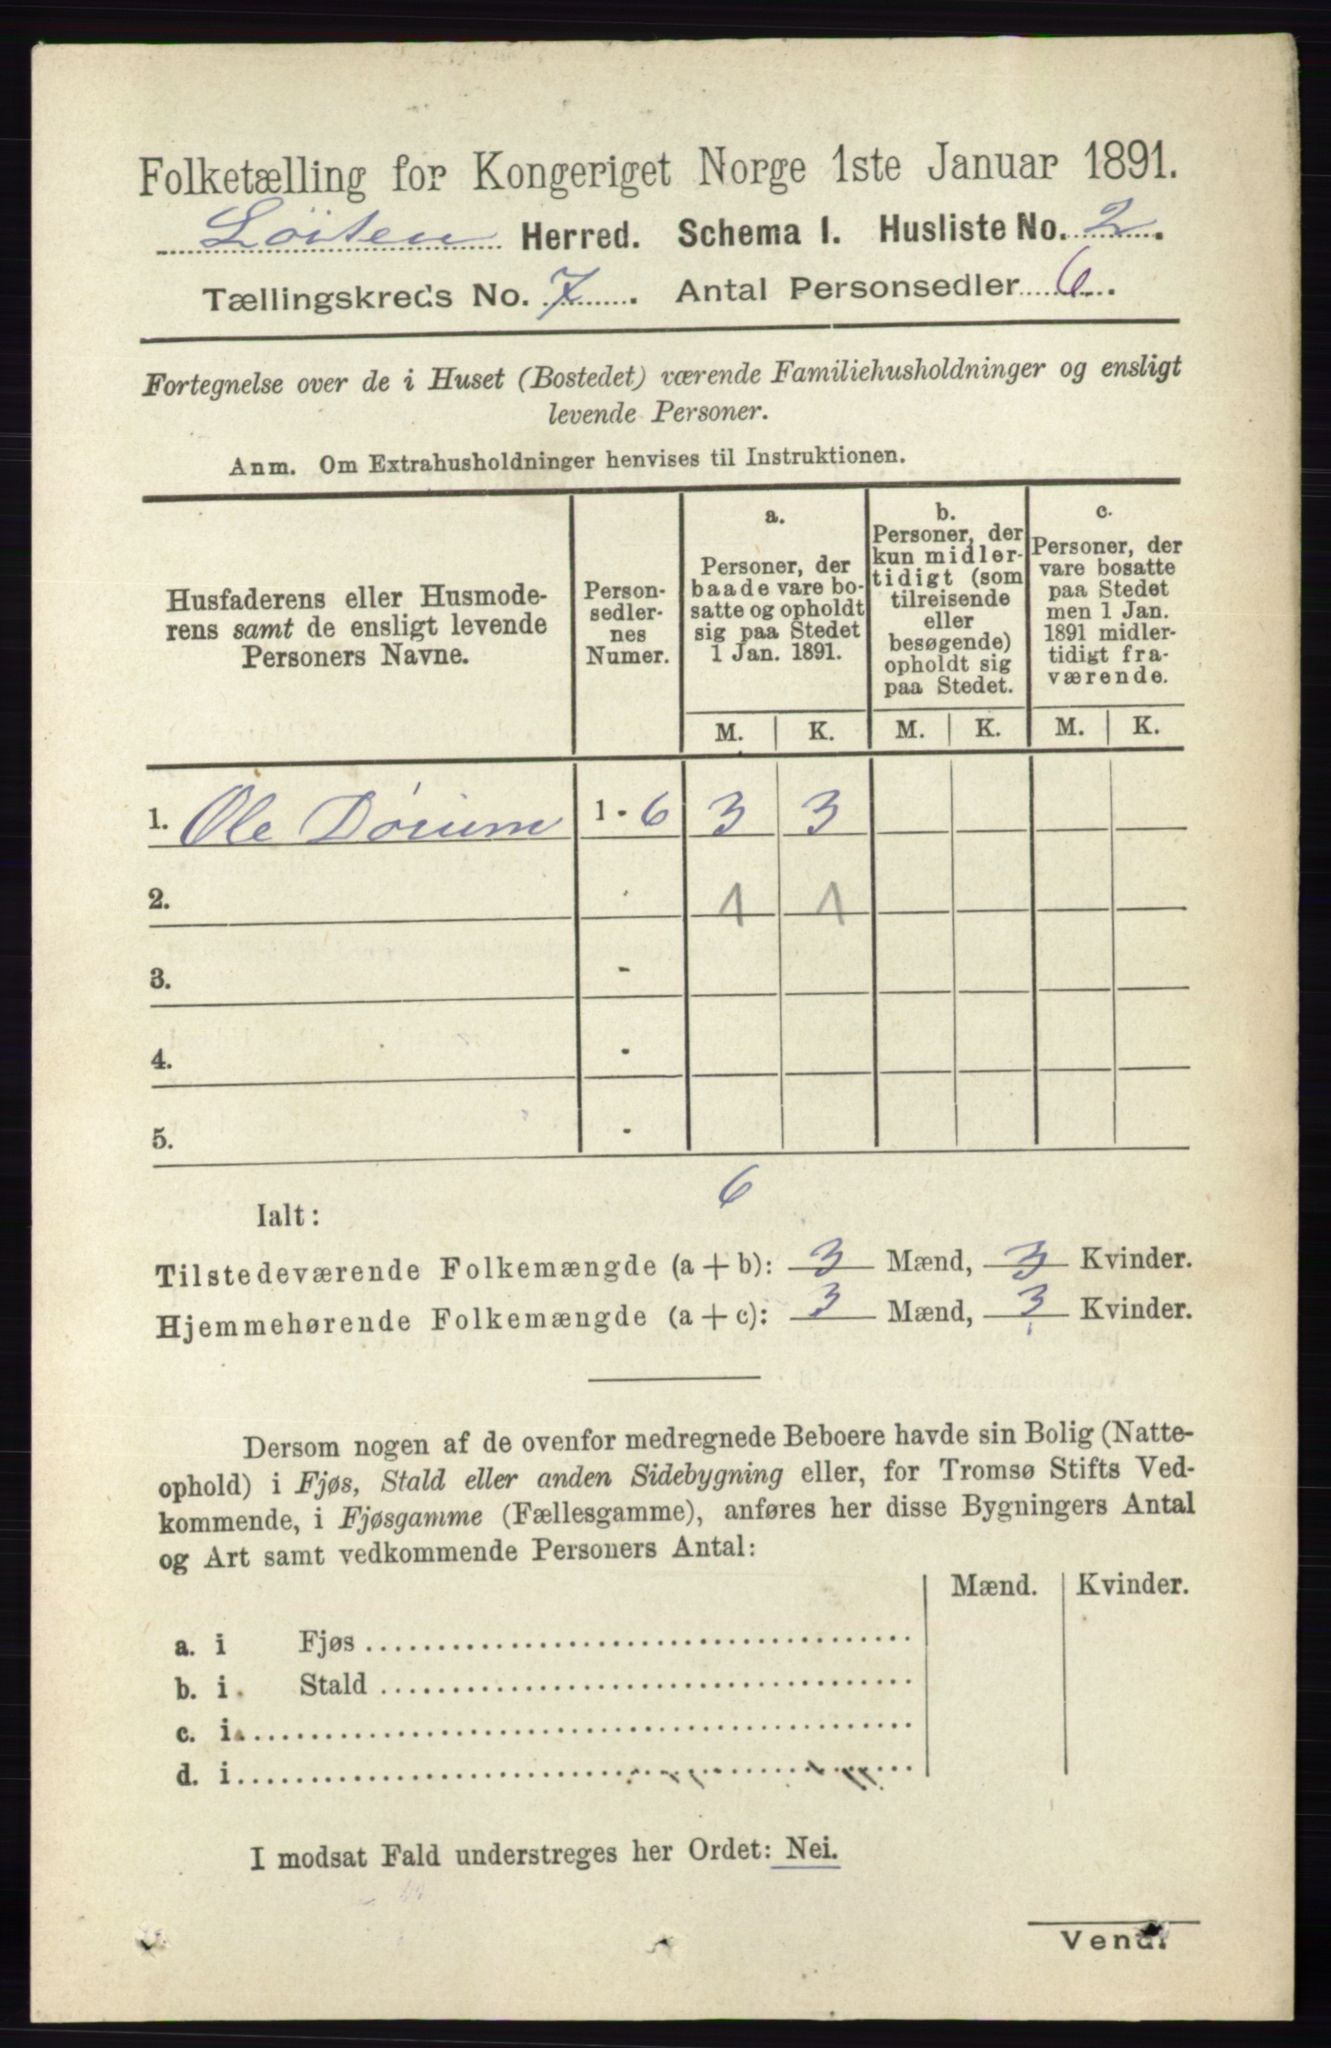 Folketælling for Kongeriget Norge 1ste Januar 1891.
Löiten Herred. Schema 1. Husliste No. 2.
Tællingskreds No. 7. Antal Personsedler 6.
Fortegnelse over de i Huset (Bostedet) værende Familiehusholdninger og ensligt
levende Personer.
Anm. Om Extrahusholdninger henvises til Instruktionen.
Husfaderens eller Husmode-
rens samt de ensligt levende
Personers Navne.
Person-
sedler-
nes
Numer.
a.
Personer, der
baade vare bo-
satte og opholdt
sig paa Stedet
1 Jan. 1891.
b.
Personer, der
kun midler-
tidigt (som
tilreisende
eller
besøgende)
opholdt sig
paa Stedet.
c.
Personer, der
vare bosatte
paa Stedet
men 1 Jan.
1891 midler-
tidigt fra-
værende.
M. K. M. K. M. K.
1. Ole Dørum 1 - 6 3 3
2. - 1 1
3. -
4. -
5. -
6
Ialt:
Tilstedeværende Folkemængde (a + b): 3 Mænd, 3 Kvinder.
Hjemmehørende Folkemængde (a + c): 3 Mænd, 3 Kvinder.
Dersom nogen af de ovenfor medregnede Beboere havde sin Bolig (Natte-
ophold) i Fjøs, Stald eller anden Sidebygning eller, for Tromsø Stifts Ved-
kommende, i Fjøsgamme (Fællesgamme), anføres her disse Bygningers Antal
og Art samt vedkommende Personers Antal:
Mænd. Kvinder.
a. i Fjøs
b. i Stald
c. i
d. i
I modsat Fald understreges her Ordet: Nei.
Vend.